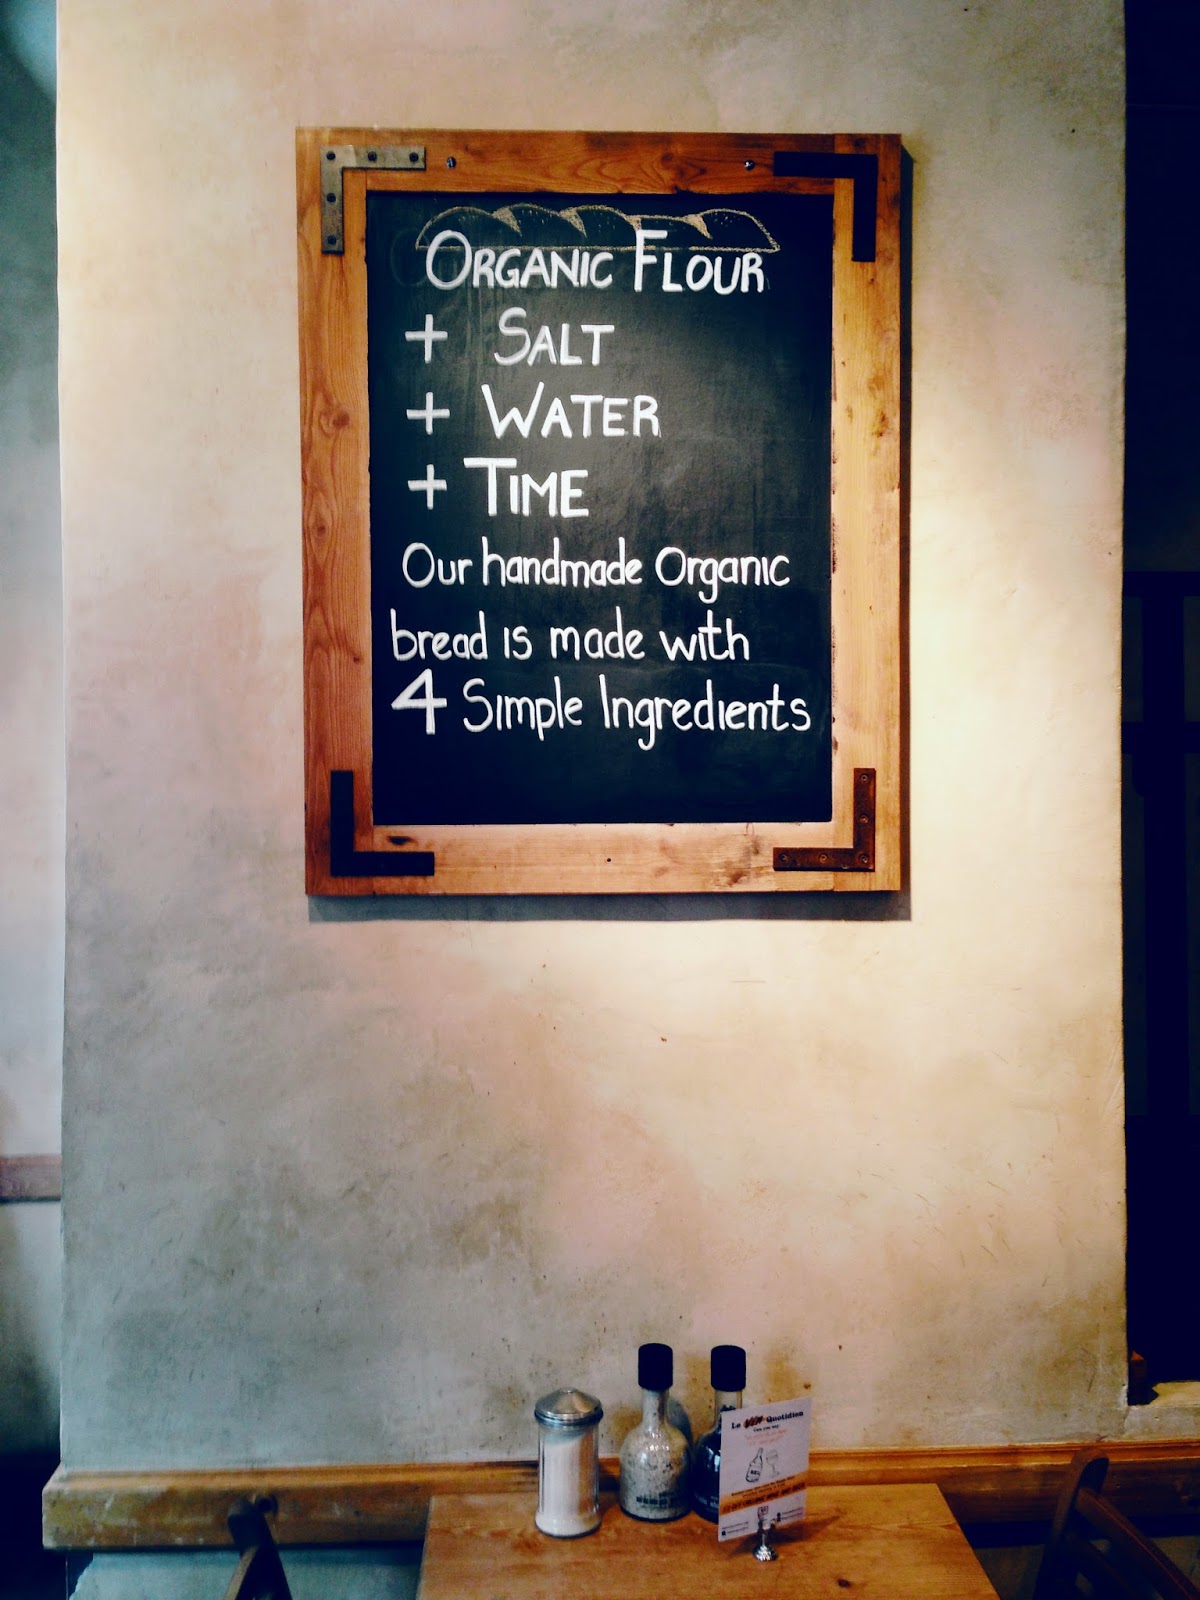 ORGANIC FLOUR
+ SALT
+ WATER
+ TIME
Our handmade Organic
bread is made with
4 Simple Ingredients
Le VIN Quotidien